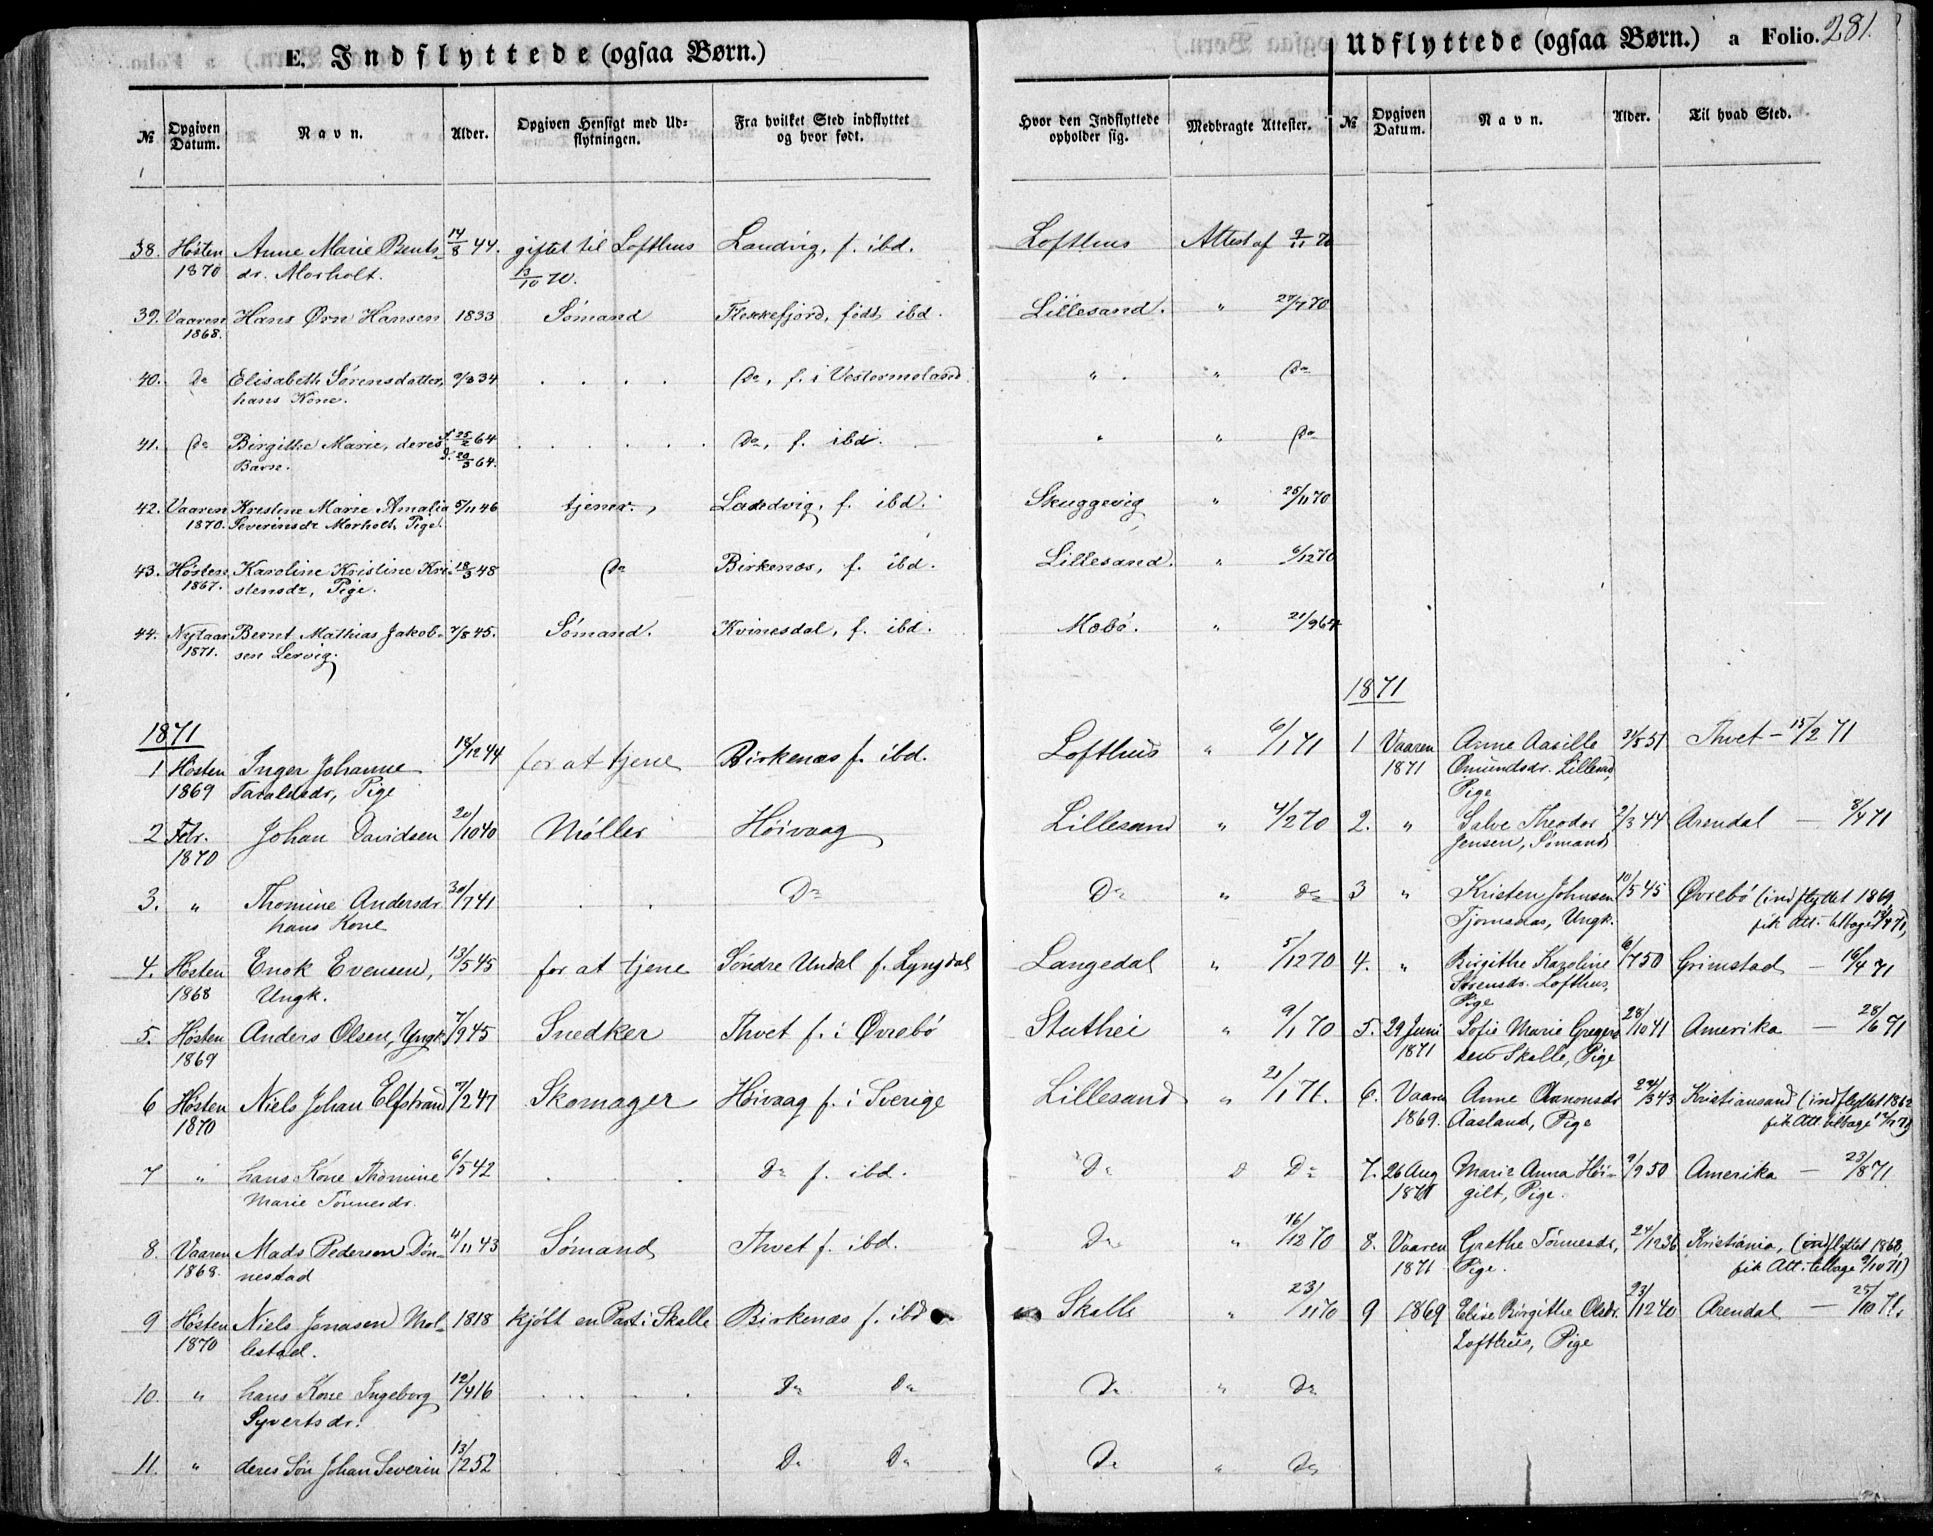 E. Indflyttede (ogsaa Børn.)
Udflyttede (ogsaa Børn.) a Folio. 281.
№ Opgiven Datum. Navn. Alder. Opgiven Hensigt med Udflytningen. Fra hvilket Sted indflyttet og hvor født. Hvor den Indflyttede opholder sig. Medbragte Attester. № Opgiven Datum. Navn. Alder. Til hvad Sted.
38. Høsten Anne Marie Bents- 14/8 44. giftet til Lofthus Landvig, f. ibd. Lofthus Attest af 9/11 70
1870 dr. Morholt. 13/10 70.
39. Vaaren Hans Ørn Hansen 1833 Sømand Flekkefjord, født ibd. Lillesand. " 27/7 70
1868.
40. Do Elisabeth Sørensdatter, 9/3 34 . . . . Do, f. i Vestermoland " " Do
hans Kone.
41. Do Birgitte Marie, deres f. 25/2 64 . . . . . Do, f. ibd. " " Do
Barn. d. 20/3 64.
42. Vaaren Kristine Marie Amalia 5/11 46 tjener. Landvig, f. ibd. Skuggevig " 25/11 70
1870. Severinsdr Morholt, Pige.
43. Høsten Karoline Kristine Kri- 18/3 48 Do Birkenæs, f. ibd. Lillesand. " 6/12 70
1867. stensdr, Pige.
44. Nytaar Bernt Mathias Jakob- 7/8 45. Sømand. Kvinesdal, f. ibd. Mæbø. " 21/9 64
1871. sen Lervig.
1871
1871
1 Høsten Inger Johanne 18/12 44 for at tjene Birkenæs f. ibd. Lofthus " 6/1 71 1 Vaaren Anne Aasille 31/5 51 Thvet - 15/2 71
1869 Taraldsdr, Pige 1871 Omundsdr. Lillesand,
Pige
2 Febr. Johan Davidsen 20/10 40 Møller Høivaag Lillesand " 4/2 70 2. " Salve Theodor 2/3 44 Arendal — 8/4 71
1870 Jensen, Sømand
3. " Thomine Andersdr 30/7 41 . . Do Do " Do 3 " Kristen Johnsen 10/5 45 Øvrebø (indflyttet 1869,
hans Kone Tjomsaas, Ungk. fik Att. tilbage
4. Høsten Enok Evensen, 13/5 45 for at tjene Søndre Undal f. Lyngdal Langedal " 5/12 70 4. " Birgithe Karoline 6/7 50 Grimstad — 16/4 71
1868 Ungk. Sørensdr. Lofthus,
Pige
5. Høsten Anders Olsen, Yngk 7/9 45 Snedker Thvet f. i Øvrebø Stuthei " 9/1 70 5. 29 Juni Sofie Marie Gregers 28/10 41 Amerika — 28/6 71
1869 1871 sen Skalle, Pige
6 Høsten Niels Johan Elfstrand 7/2 47 Skomager Høivaag f. i Sverige Lillesand " 21/1 71. 6. Vaaren Anne Aanonsdr 24/3 43 Kristiansand (indflyttet 1862
1870 1869. Aasland, Pige fik Att. tilbage
7 " hans Kone Thomine 6/5 42 . . Do f. ibd. Do " Do 7. 26 Aug Marie Anna Høi- 9/9 50 Amerika — 23/8 71
Marie Tønnesdr. 1871 gilt, Pige.
8. Vaaren Mads Pedersen Døn- 4/11 43 Sømand Thvet f. ibd. Do " 16/12 70 8. Vaaren Grethe Tønnesdr, 24/12 36 Kristiania, (indflyttet 1868,
1868. nestad 1871 Pige. fik Att. tilbage 9/10 71)
9 Høsten Niels Jonasen Mol- 1818 kjøbt en Part i Skalle Birkenæs f. ibd Skalle " 23/11 70 9 1869 Elise Birgithe Olsdr. 23/12 40 Arendal — 25/10 71.
1870 lestad. Lofthus, Pige
10. " hans Kone Ingeborg 12/4 16 . . . . Do Do Do " Do
Syvertsdr.
11. " deres Søn Johan Severin 13/2 52 . . . Do Do Do " Do